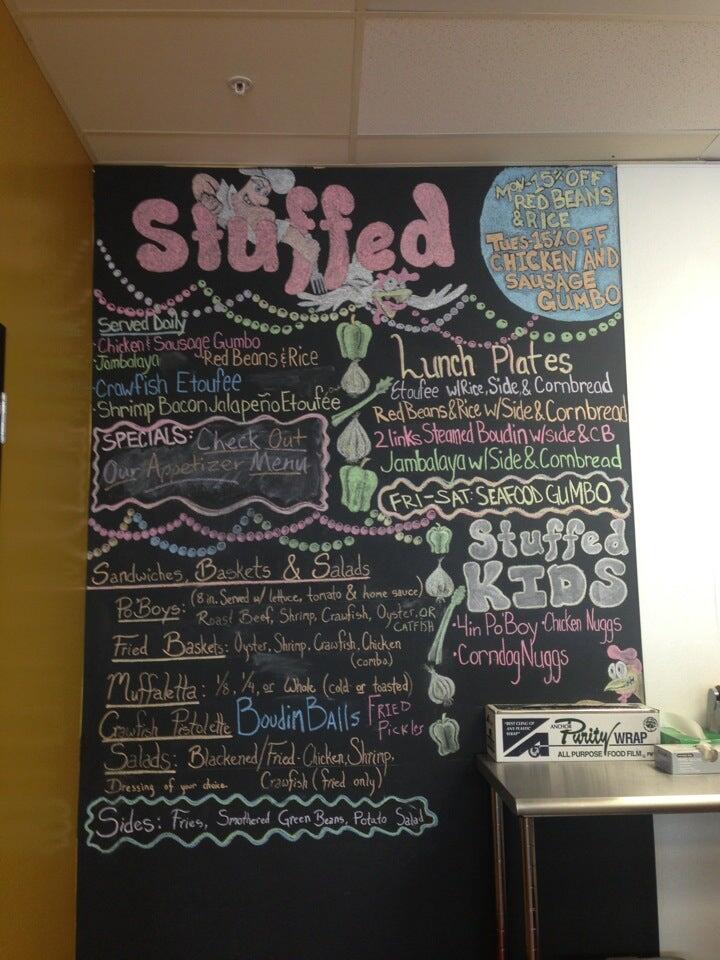 Stuffed
MON-15% OFF
RED BEANS
& RICE
TUES-15% OFF
CHICKEN AND
SAUSAGE
GUMBO
Served Daily
·Chicken & Sausage Gumbo
·Jambalaya Red Beans & Rice
·Crawfish Etoufee
·Shrimp Bacon Jalapeño Etoufée
SPECIALS: Check Out
Our Appetizer Menu
Lunch Plates
Etoufee w/Rice, Side, & Cornbread
Red Beans & Rice w/Side & Cornbread
2 links Steamed Boudin w/side & CB
Jambalaya w/Side & Cornbread
FRI-SAT: SEAFOOD GUMBO
Stuffed
KIDS
·4in Po'Boy ·Chicken Nuggs
·Corndog Nuggs
Sandwiches, Baskets & Salads
Po'Boys: (8 in. Served w/ lettuce, tomato & home sauce)
Roast Beef, Shrimp, Crawfish, Oyster, OR
CATFISH
Fried Baskets: Oyster, Shrimp, Crawfish, Chicken
(combo)
Muffaletta: 1/8, 1/4, or Whole (cold or toasted)
Crawfish Pistolette Boudin Balls FRIED
Pickles
Salads: Blackened/Fried-Chicken, Shrimp,
Dressing of your choice. Crawfish (fried only)
Sides: Fries, Smothered Green Beans, Potato Salad
"BEST CLING OF
ANY PLASTIC
WRAP"
ANCHOR
Purity WRAP
ALL PURPOSE FOOD FILM